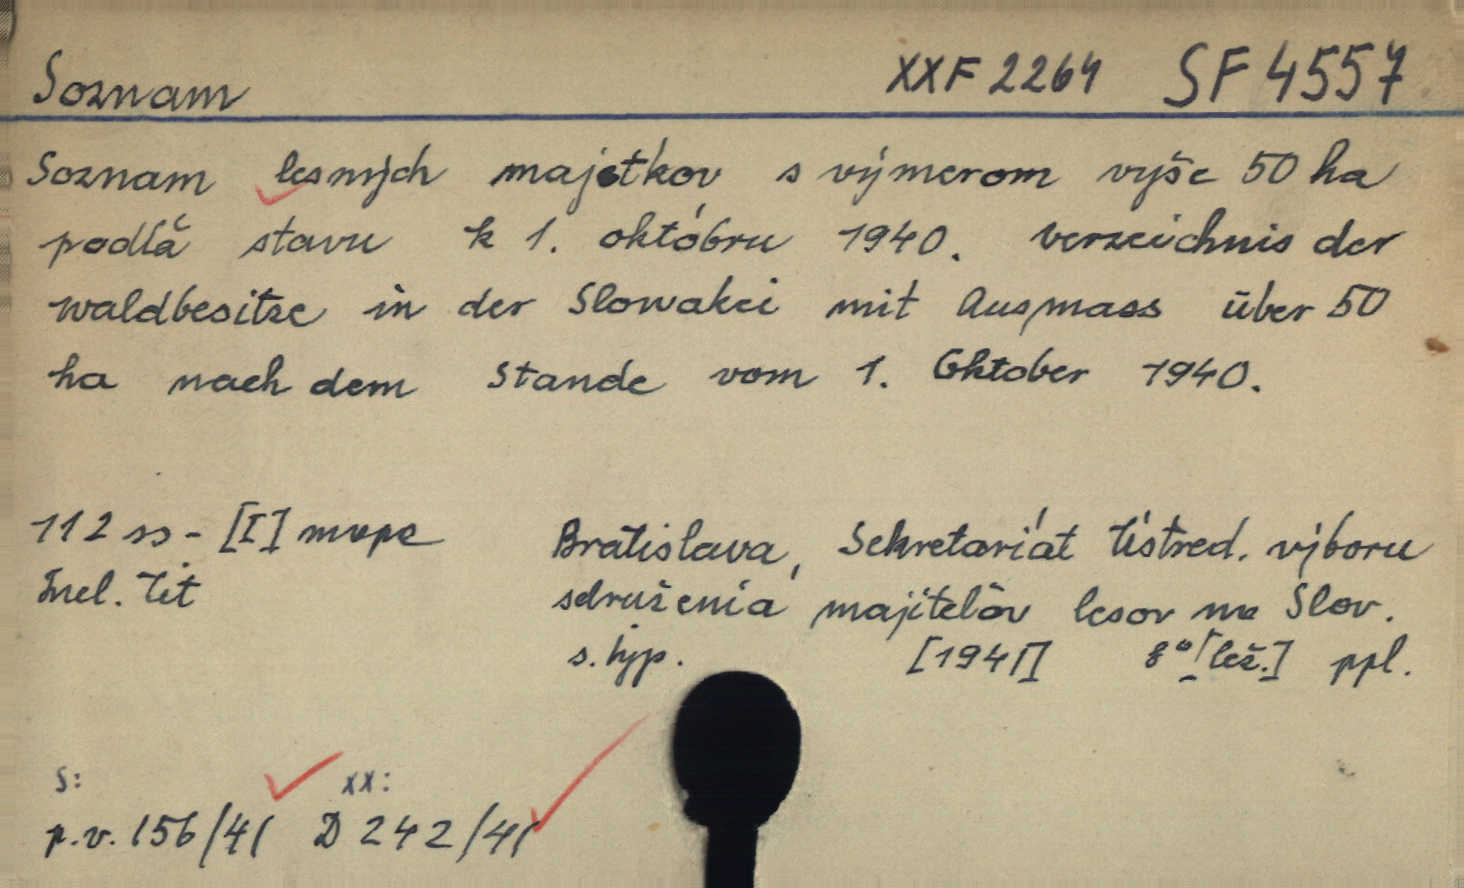 Soznam XXF 2264 SF 4557
Soznam lesných majetkov s výmerom vyše 50 ha
podľa stavu k 1. októbru 1940. Verzeichnis der
Waldbesitze in der Slowakei mit Ausmass über 50
ha nach dem Stande vom 1. Oktober 1940.
112 ss - [I] mapa Bratislava, Sekretariát Ústred. výboru
Incl. tit sdruženia majiteľov lesov na Slov.
s. typ. [1941] 8° [lež.] ppl.
S: xx:
p.v. 156/41 D 242/41